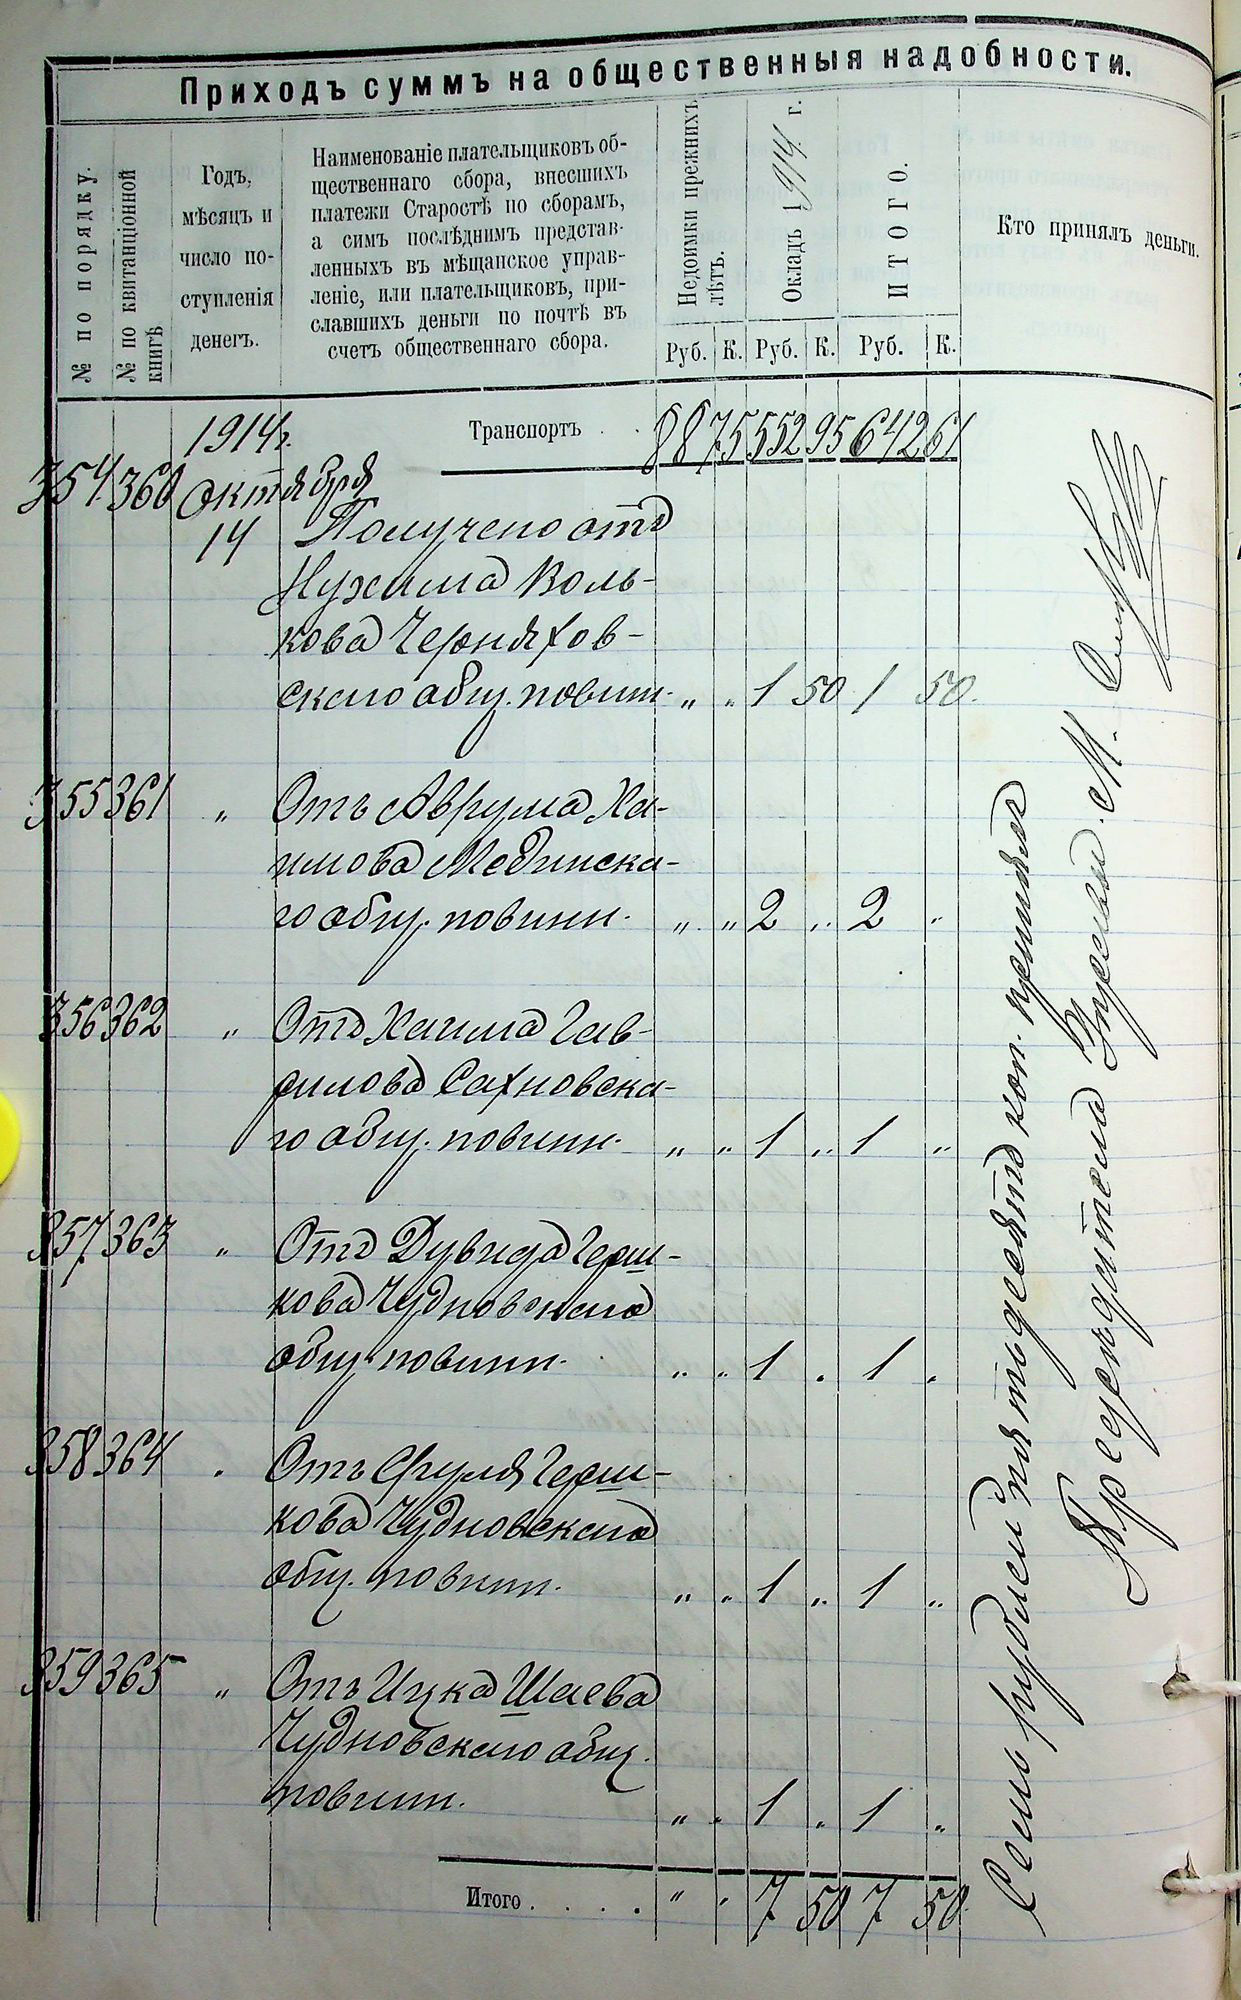 Приходъ суммъ на общественныя надобности.
№ по порядку.
№ по квитанціонной
книгѣ
Годъ,
мѣсяцъ и
число по-
ступленія
денегъ.
Наименованіе плательщиковъ об-
щественнаго сбора, внесшихъ
платежи Старостѣ по сборамъ,
а симъ послѣднимъ представ-
ленныхъ въ мѣщанское управ-
леніе, или плательщиковъ, при-
славшихъ деньги по почтѣ въ
счетъ общественнаго сбора.
Недоимки прежнихъ
лѣтъ.
Окладъ 1914 г.
ИТОГО.
Кто принялъ деньги.
Руб. К. Руб. К. Руб. К.
1914 г. Транспортъ . . 88 75 552 95 642 61
354 360 октября
14 Получено отъ
Нухима Воль-
кова Черняхов-
скаго общ. повин. „ „ 1 50 1 50.
355 361 „ Отъ Аврума Ха-
имова Мединска-
го общ. повинн. „ „ 2 „ 2 „
356 362 „ Отъ Хаима Гав-
рилова Сахновска-
го общ. повинн. „ „ 1 „ 1 „
357 363 „ Отъ Дувида Герш-
кова Чудновскаго
общ. повинн. „ „ 1 . 1 .
358 364 . Отъ Сруля Герш-
кова Чудновскаго
общ. повинн. „ „ 1 „ 1 „
359 365 „ Отъ Ицка Шаева
Чудновскаго общ.
повинн. „ . 1 „ 1 „
Итого . . . . „ . 7 50 7 50.
Семь рублей пятьдесятъ коп. принялъ
Предсѣдатель Управы М.